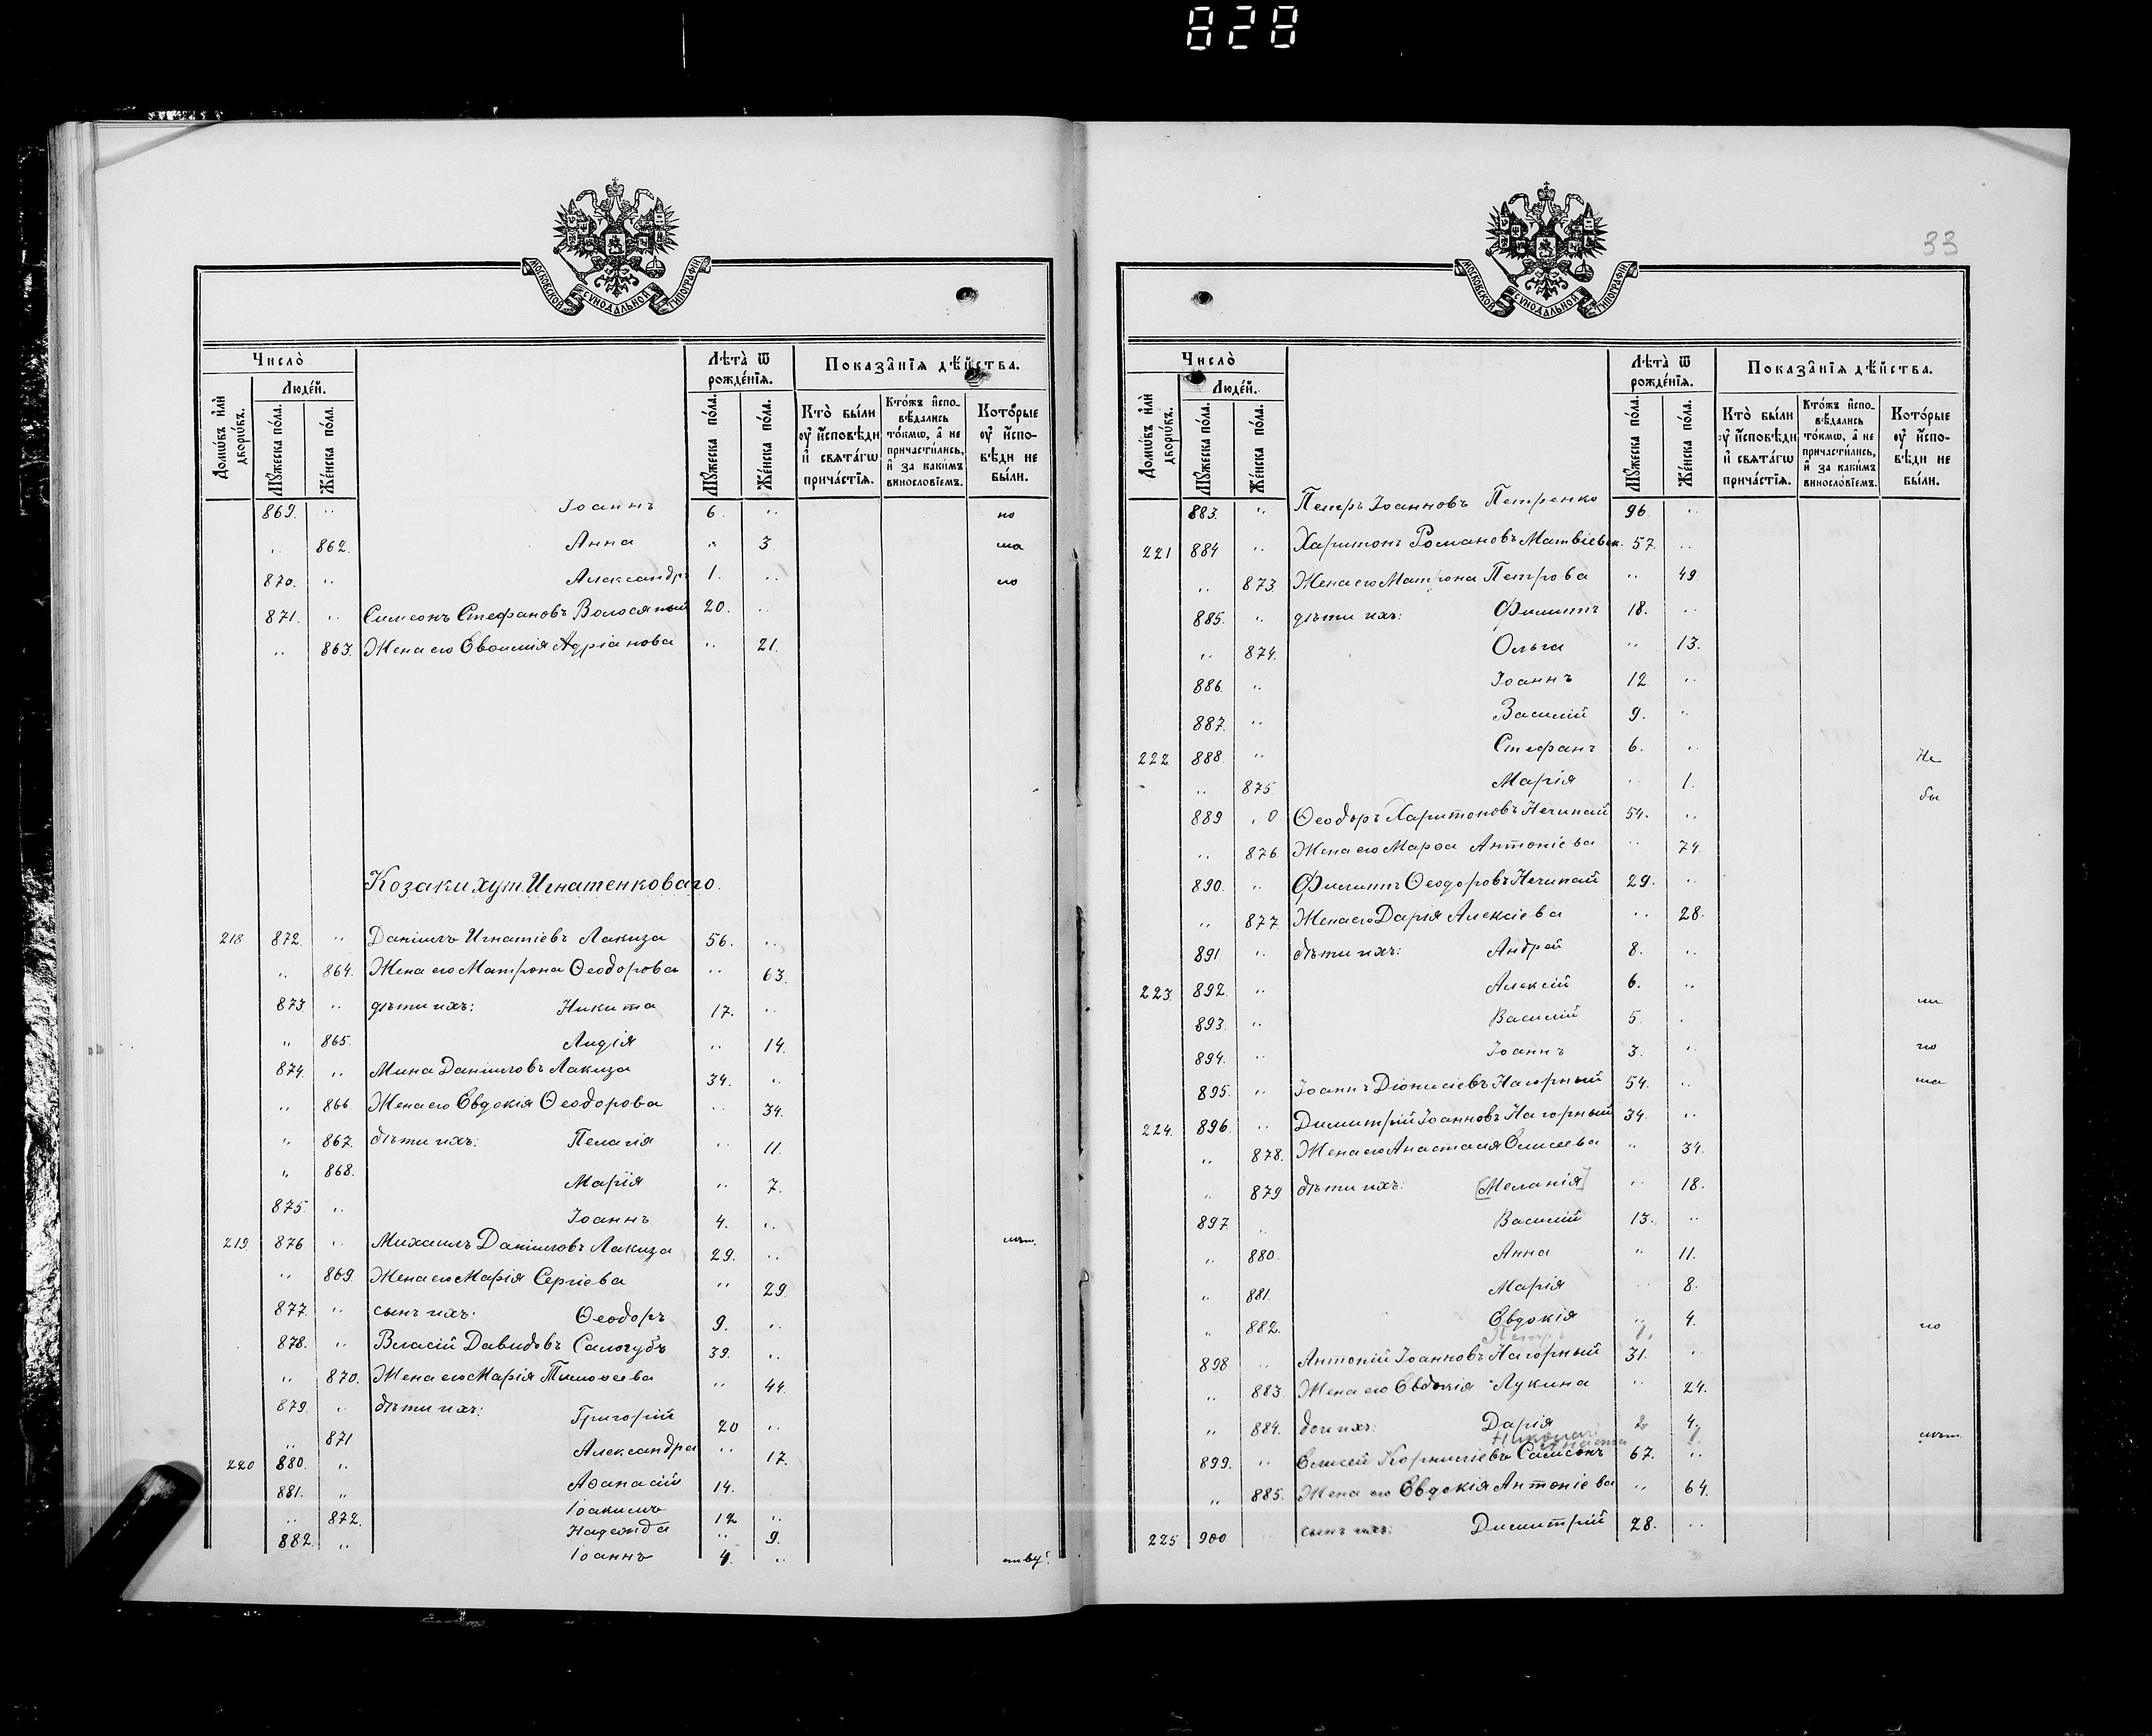 828
МОСКОВСКОЙ СѴНОДАЛЬНОЙ ТИПОГРАФІИ
Число̀
Люде́й.
Домѡ́въ и҆лѝ дворѡ́въ.
Мꙋ́жеска по́ла.
Же́нска по́ла.
Лѣта̀ ѿ рожде́нїѧ.
Мꙋ́жеска по́ла.
Же́нска по́ла.
Показа̑нїѧ дѣ́йства.
Кто̀ бы́ли ᲂу҆ и҆́сповѣди и҆ свѧта́гѡ прича́стїѧ.
Кто́жъ и҆спо-вѣ́дались то́кмѡ, а҆ не причасти́лись, и҆ за каки́мъ винословїемъ.
Кото́рые ᲂу҆ и҆спо-вѣди не бы́ли.
869. " Іоаннъ 6. " но
" 862. Анна " 3. ша
870. " Александръ 1. " го
871. " Симеонъ Стефановъ Волосяный 20. "
" 863. Жена его Евѳимія Адріанова " 21.
Козаки хут. Игнатенковаго.
218 872. " Даніилъ Игнатіевъ Лакиза 56. "
" 864. Жена его Матрона Ѳеодорова " 63.
873. " дѣти ихъ: Никита 17. "
" 865. Лидія " 14.
874. " Мина Даніиловъ Лакиза 34. "
" 866. Жена его Евдокія Ѳеодорова " 34.
" 867. дѣти ихъ: Пелагія " 11.
" 868. Марія " 7.
875. " Іоаннъ 4. "
219. 876. " Михаилъ Даніиловъ Лакиза 29. "
" 869. Жена его Марія Сергіева " 29.
877. " сынъ ихъ: Ѳеодоръ 9. "
878. " Власій Давидовъ Салогубъ 39. "
" 870. Жена его Марія Тимоѳеева " 44.
879. " дѣти ихъ: Григорій 20 "
" 871 Александра " 17.
220 880. " Аѳанасій 14. "
881. " Іоакимъ 12 "
" 872. Надежда " 9.
882. " Іоаннъ 4. "
33
МОСКОВСКОЙ СѴНОДАЛЬНОЙ ТИПОГРАФІИ
Число̀
Люде́й.
Домѡ́въ и҆лѝ дворѡ́въ.
Мꙋ́жеска по́ла.
Же́нска по́ла.
Лѣта̀ ѿ рожде́нїѧ.
Мꙋ́жеска по́ла.
Же́нска по́ла.
Показа̑нїѧ дѣ́йства.
Кто̀ бы́ли ᲂу҆ и҆́сповѣди и҆ свѧта́гѡ прича́стїѧ.
Кто́жъ и҆спо-вѣ́дались то́кмѡ, а҆ не причасти́лись, и҆ за каки́мъ винословїемъ.
Кото́рые ᲂу҆ и҆спо-вѣди не бы́ли.
883. " Петръ Іоанновъ Петренко 96. "
221 884 " Харитонъ Романовъ Матвіевск. 57. "
" 873. Жена его Матрона Петрова " 49
885. " дѣти ихъ: Филиппъ 18. "
" 874. Ольга " 13.
886. " Іоаннъ 12 "
887. " Василій 9. "
222 888 " Стефанъ 6. " Не
" 875 Марія " 1. бы
889 " 0 Ѳеодоръ Харитоновъ Нечипай 54. "
" 876 Жена его Марѳа Антоніева " 74.
890. " Филиппъ Ѳеодоровъ Нечипай 29. "
" 877 Жена его Дарія Алексіева " 28.
891. " дѣти ихъ: Андрей 8. "
223. 892. " Алексій 6. " ли
893. " Василій 5. "
894. " Іоаннъ 3. " по
895. " Іоаннъ Діонисіевъ Нагорный 54. " ша
224. 896. " Димитрій Іоанновъ Нагорный 34. "
" 878. Жена его Анастасія Елисеева " 34.
" 879 дѣти ихъ: [Меланія] " 18.
897. " Василій 13. "
" 880. Анна " 11.
" 881. Марія " 8.
" 882. Евдокія " 4. по
Петръ 1.
898 " Антоній Іоанновъ Нагорный 31. "
" 883. Жена его Евдокія Лукина " 24.
" 884. дочь ихъ: Дарія 2 4.
Николай
899. " Елисей Корниліевъ Самсонъ 67. "
" 885. Жена его Евдокія Антоніева " 64.
225 900 " сынъ ихъ: Димитрій 28. "